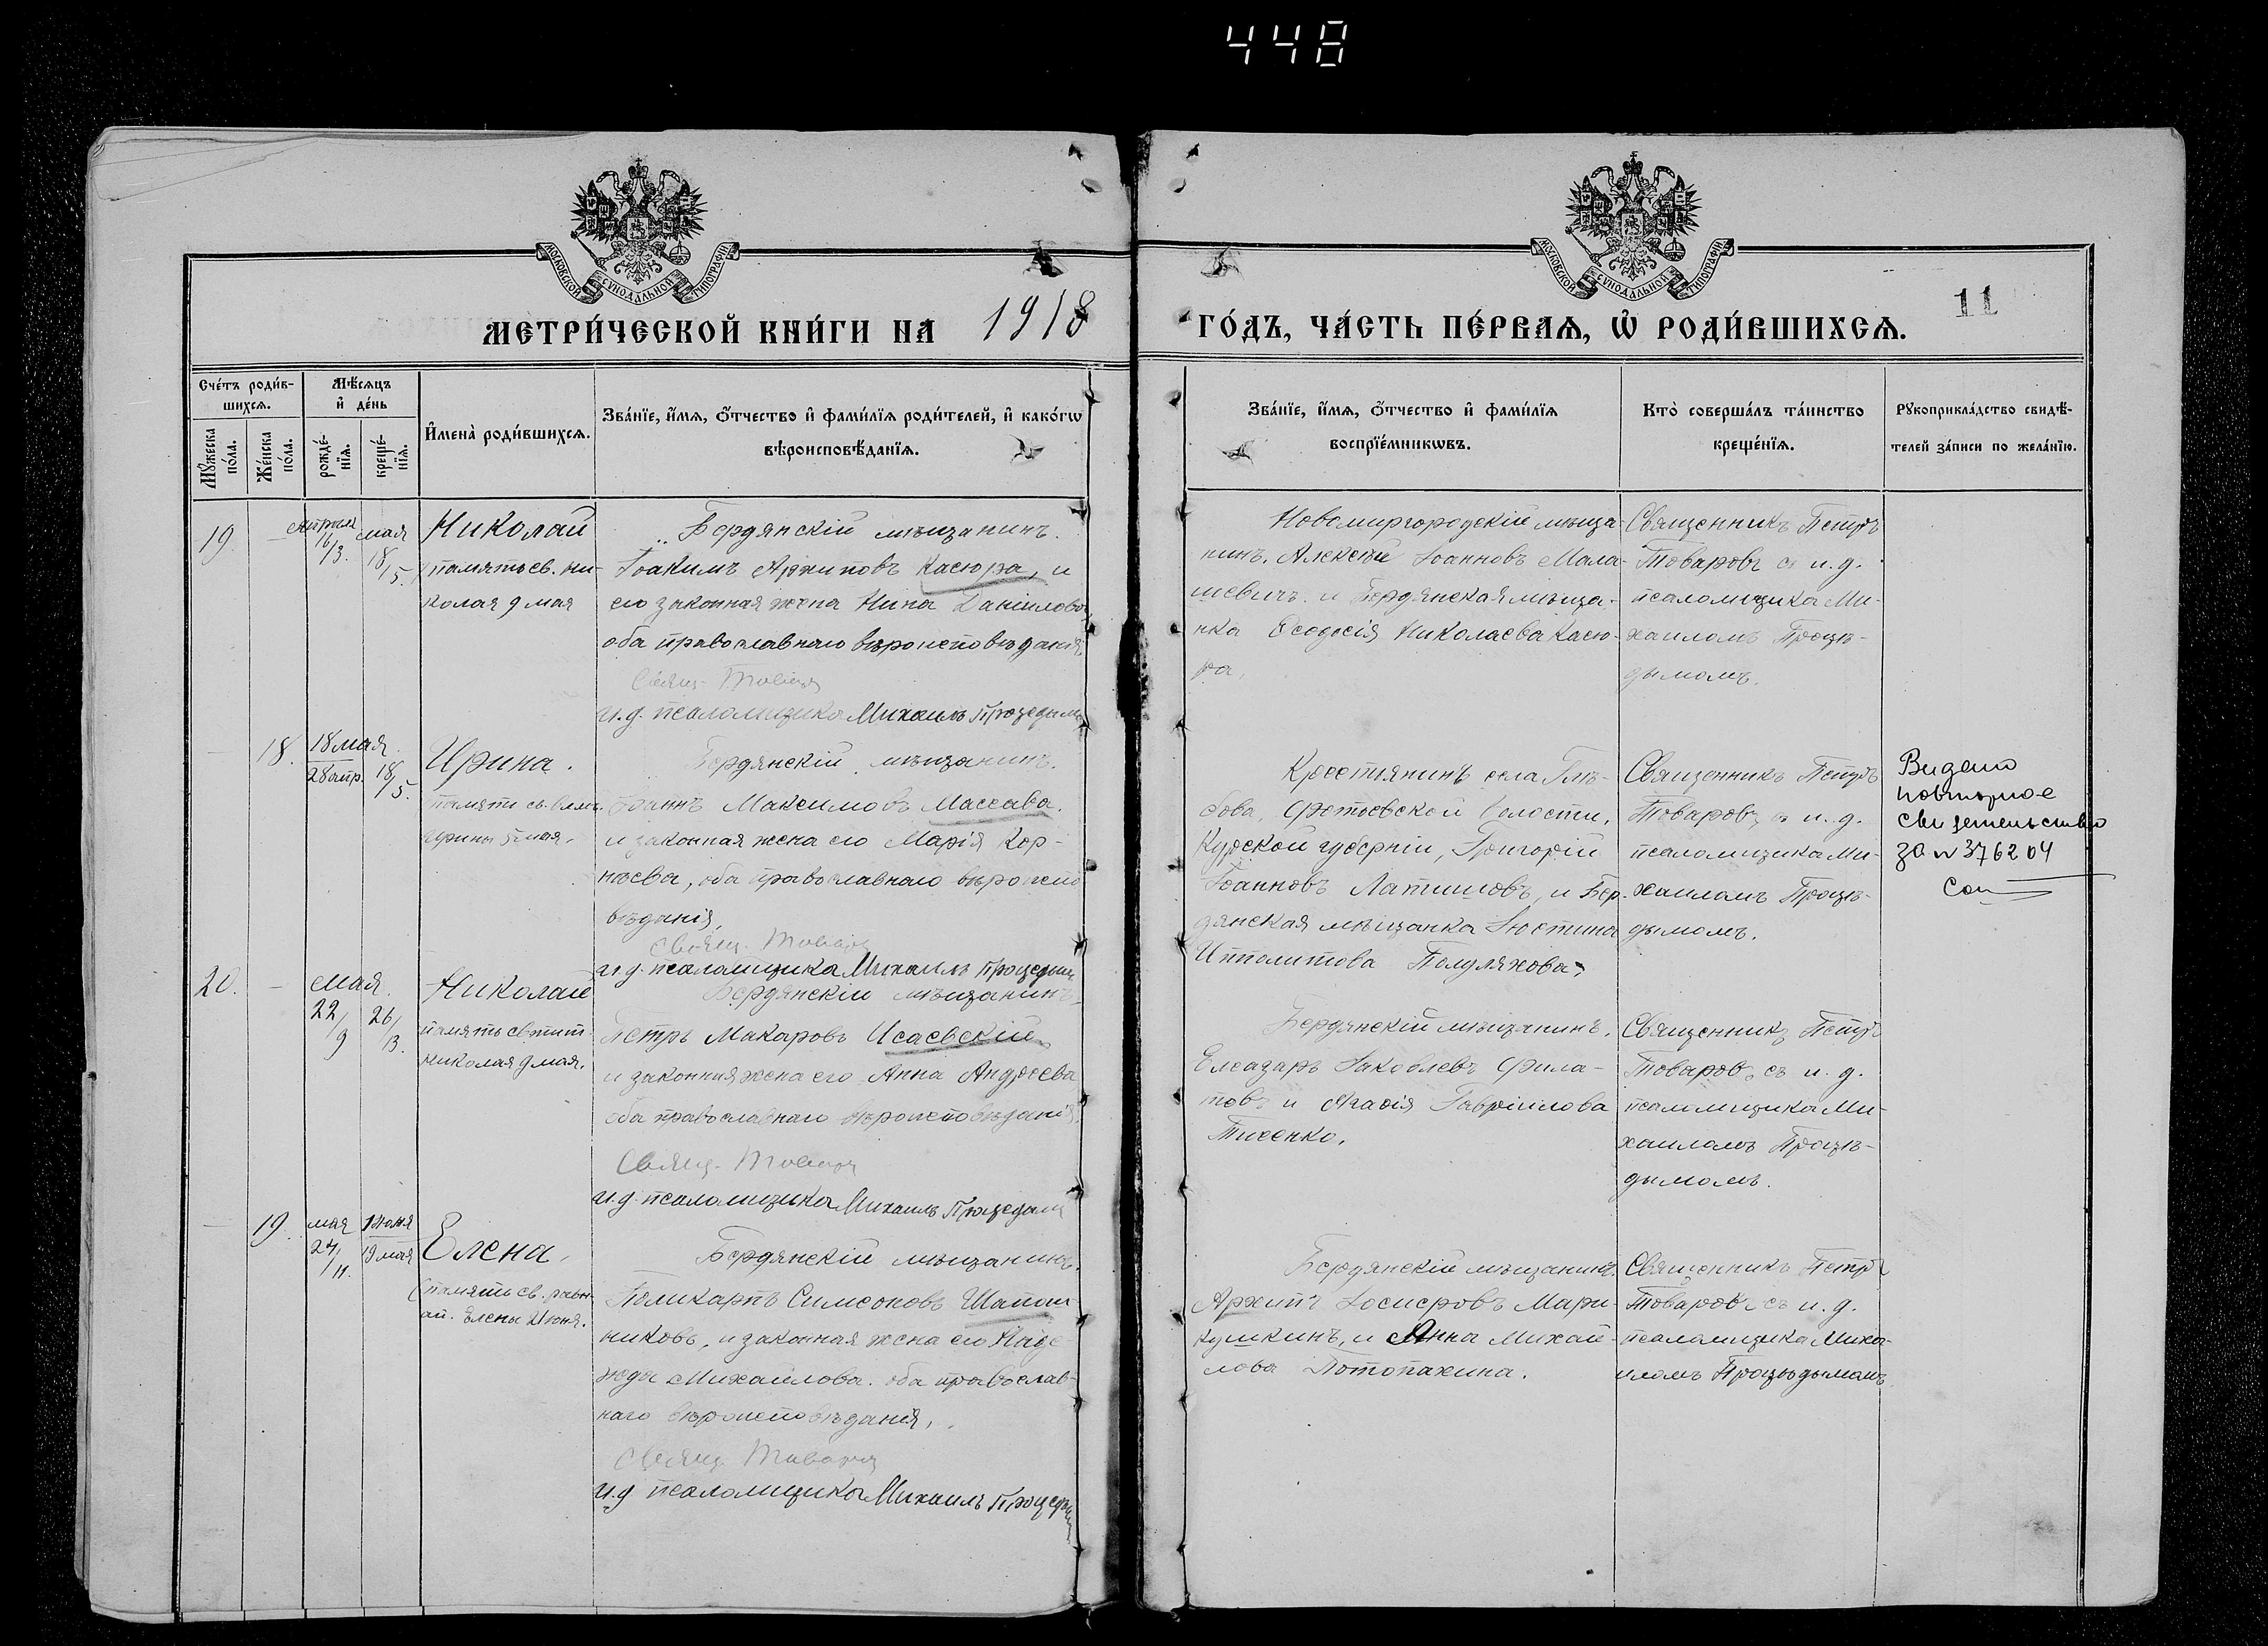 448
МОСКОВСКОЙ СУНОДАЛЬНОЙ ТИПОГРАФІИ
МОСКОВСКОЙ СУНОДАЛЬНОЙ ТИПОГРАФІИ
11
МЕТРИ́ЧЕСКОЙ КНИ́ГИ НА 1918 ГО́ДЪ, ЧА́СТЬ ПЕ́РВАѦ, Ѡ РОДИ́ВШИХСѦ.
Сче́тъ роди́в-
шихсѧ.
Мꙋ́жеска
по́ла.
Же́нска
по́ла.
Мѣ́сѧцъ
и҆ де́нь
рожде́-
нїѧ.
креще́-
нїѧ.
И҆мена̀ роди́вшихсѧ.
Зва́нїе, и҆́мѧ, ѻ҆́тчество и҆ фами́лїѧ роди́телей, и҆ како́гѡ
вѣроисповѣ́данїѧ.
Зва́нїе, и҆́мѧ, ѻ҆́тчество и҆ фами́лїѧ
воспрїе́мникѡвъ.
Кто̀ соверша́лъ та́инство
креще́нїѧ.
Рꙋкоприкла́дство свидѣ́-
телей за́писи по жела́нїю.
19. -
Апрѣля
16/3.
мая
18/5.
Николай
память св. Ни-
колая 9 мая
Бердянскій мѣщанинъ.
Іоакимъ Архиповъ Касюра, и
его законная жена Нина Даніилова
оба православнаго вѣроисповѣданія
Свящ. Товаровъ
И. д. псаломщика Михаилъ Процедымъ
Новомиргородскій мѣща-
нинъ, Алексѣй Іоанновъ Мала-
шевичъ и Бердянская мѣща-
нка Ѳеодосія Николаева Касю-
ра,
Священникъ Петръ
Товаровъ съ и. д.
псаломщика Ми-
хаиломъ Процѣ-
дымомъ.
- 18.
18 мая
28 апр.
18/5.
Ирина.
памяти св. Велм.
Ирины 5 мая.
Бердянскій мѣщанинъ.
Іоаннъ Максимовъ Массава.
и законная жена его Марія Кор-
нѣева, оба православнаго вѣроиспо
вѣданія,
Свящ. Товаровъ
И. д. псаломщика Михаилъ Процедым
Крестьянинъ села Глѣ-
бова, Фотьевской волости,
Курской губерніи, Григорій
Іоанновъ Латышовъ, и Бер-
дянская мѣщанка Іюстина
Ипполитова Полуляхова,
Священникъ Петръ
Товаровъ съ и. д.
псаломщика Ми-
хаиломъ Процѣ-
дымомъ.
Видано
повторное
свидетельство
за N 376204
20. -
Мая
22/9
26/13.
Николай
память святит.
Николая 9 мая.
Бердянскій мѣщанинъ
Петръ Макаровъ Исаевскій
и законная жена его Анна Андреева
оба православнаго вѣроисповѣданія.
Свящ. Товаровъ
И. д. псаломщика Михаилъ Процедым
Бердянскій мѣщанинъ.
Елеазаръ Іаковлевъ Фила-
товъ и Агафія Гавріилова
Тихенко.
Священникъ Петръ
Товаровъ съ и. д.
псаломщика Ми-
хаиломъ Процѣ-
дымомъ.
- 19.
мая
24/11.
1 Іюня
19 мая
Елена,
(память св. равн.
ап. Елены 21 Іюня.
Бердянскій мѣщанинъ.
Поликарпъ Симеоновъ Шапош
никовъ, и законная жена его Наде
жда Михайлова. оба православ-
наго вѣроисповѣданія,
Свящ. Товаровъ
И. д псаломщика Михаилъ Процедым
Бердянскій мѣщанинъ.
Архипъ Іосифовъ Мари-
кушкинъ, и Анна Михай-
лова Потопахина.
Священникъ Петръ
Товаровъ съ и. д.
псаломщика Миха-
иломъ Процѣдымомъ